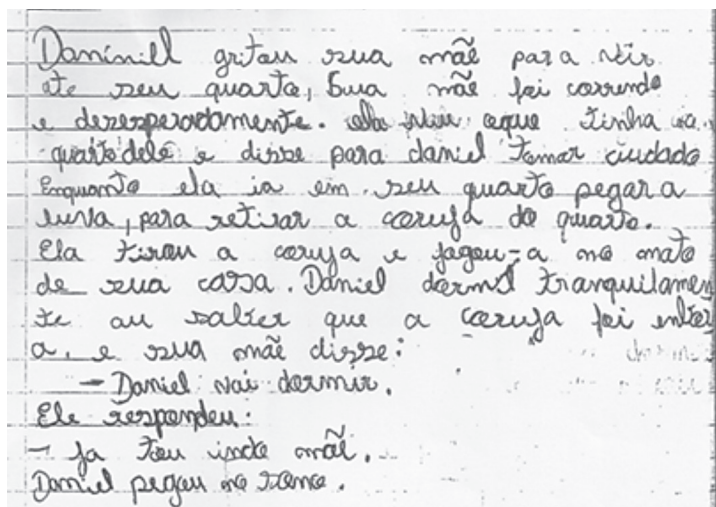 Daniniell gritou sua mãe para vir
ate seu quarto, Sua mãe foi correndo
e desesperadamente. ela viu oque tinha no
quarto dele e disse para daniel tomar ciudado
Enquanto ela ia em seu quarto pegar a
luva, para retirar a coruja do quarto.
Ela tirou a coruja e jogou-a no mato
de sua casa. Daniel dormil tranquilamen
te au saber que a coruja foi
a, e sua mãe disse:
- Daniel vai dormir.
Ele respondeu:
- Ja tou indo mãe.
Daniel pegou no sono.